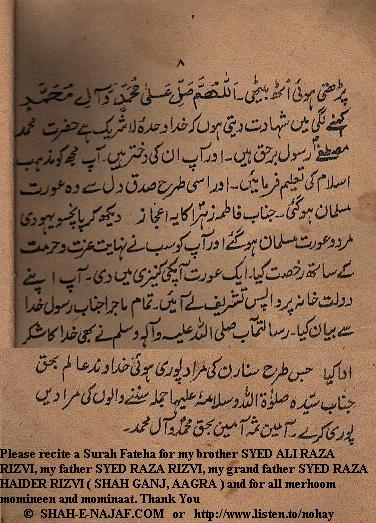 ۸
پڑھتی ہوئی اُٹھ بیٹھی۔ اَللّٰھُمَّ صَلِّ عَلیٰ مُحَمَّدٍ وَّآلِ مُحَمَّد
کہنے لگی میں شہادت دیتی ہوں کہ خدا وحدہٗ لاشریک ہے حضرت محمد
مصطفےٰ رسول برحق ہیں۔ اور آپ ان کی دختر ہیں۔ آپ مجھ کو مذہب
اسلام کی تعلیم فرمائیں۔ اور اسی طرح صدق دل سے وہ عورت
مسلمان ہوگئی۔ جناب فاطمہ زہرا کا یہ اعجاز دیکھ کر پانچسو یہودی
مرد و عورت مسلمان ہوگئے اور آپ کو سب نے نہایت عزت و حرمت
کے ساتھ رخصت کیا۔ ایک عورت آپکی کنیزی میں دی۔ آپ اپنے
دولت خانہ پر واپس تشریف لے آئیں۔ تمام ماجرا جناب رسول خدا
سے بیان کیا۔ رسالتمآب صلی اللہ علیہ وآلہ وسلم نے بھی خدا کا شکر
ادا کیا جس طرح سنارن کی مراد پوری ہوئی خداوند عالم بحق
جناب سیّدہ صلوٰۃ اللہ وسلامہٗ علیہا جملہ سننے والوں کی مرادیں
پوری کرے۔ آمین ثمہ آمین بحق محمدؐ وآل محمدؐ۔
Please recite a Surah Fateha for my brother SYED ALI RAZA
RIZVI, my father SYED RAZA RIZVI, my grand father SYED RAZA
HAIDER RIZVI ( SHAH GANJ, AAGRA ) and for all merhoom
momineen and mominaat. Thank You
© SHAH-E-NAJAF.COM or http://www.listen.to/nohay